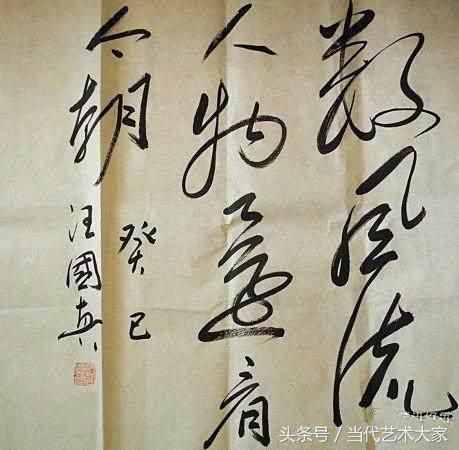 数风流
人物還看
今朝
癸巳
汪國真
头条号 / 当代艺术大家